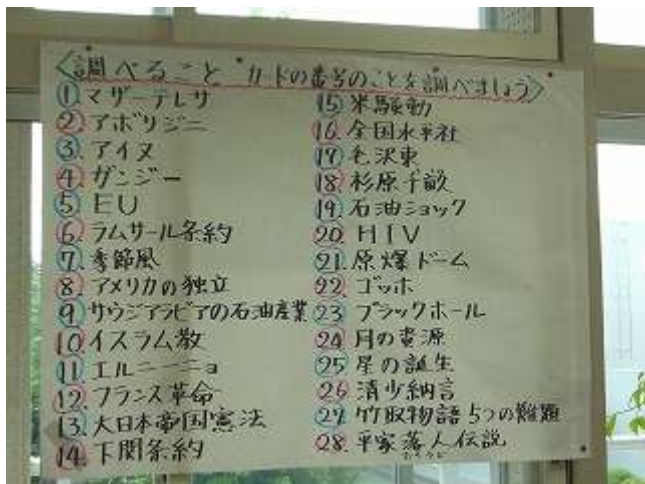 〈調べること・カードの番号のことを調べましょう〉
① マザーテレサ
② アボリジニ
③ アイヌ
④ ガンジー
⑤ EU
⑥ ラムサール条約
⑦ 季節風
⑧ アメリカの独立
⑨ サウジアラビアの石油産業
⑩ イスラム教
⑪ エルニーニョ
⑫ フランス革命
⑬ 大日本帝国憲法
⑭ 下関条約
⑮ 米騒動
⑯ 全国水平社
⑰ 毛沢東
⑱ 杉原千畝
⑲ 石油ショック
⑳ HIV
㉑ 原爆ドーム
㉒ ゴッホ
㉓ ブラックホール
㉔ 月の資源
㉕ 星の誕生
㉖ 清少納言
㉗ 竹取物語 5つの難題
㉘ 平家落人伝説